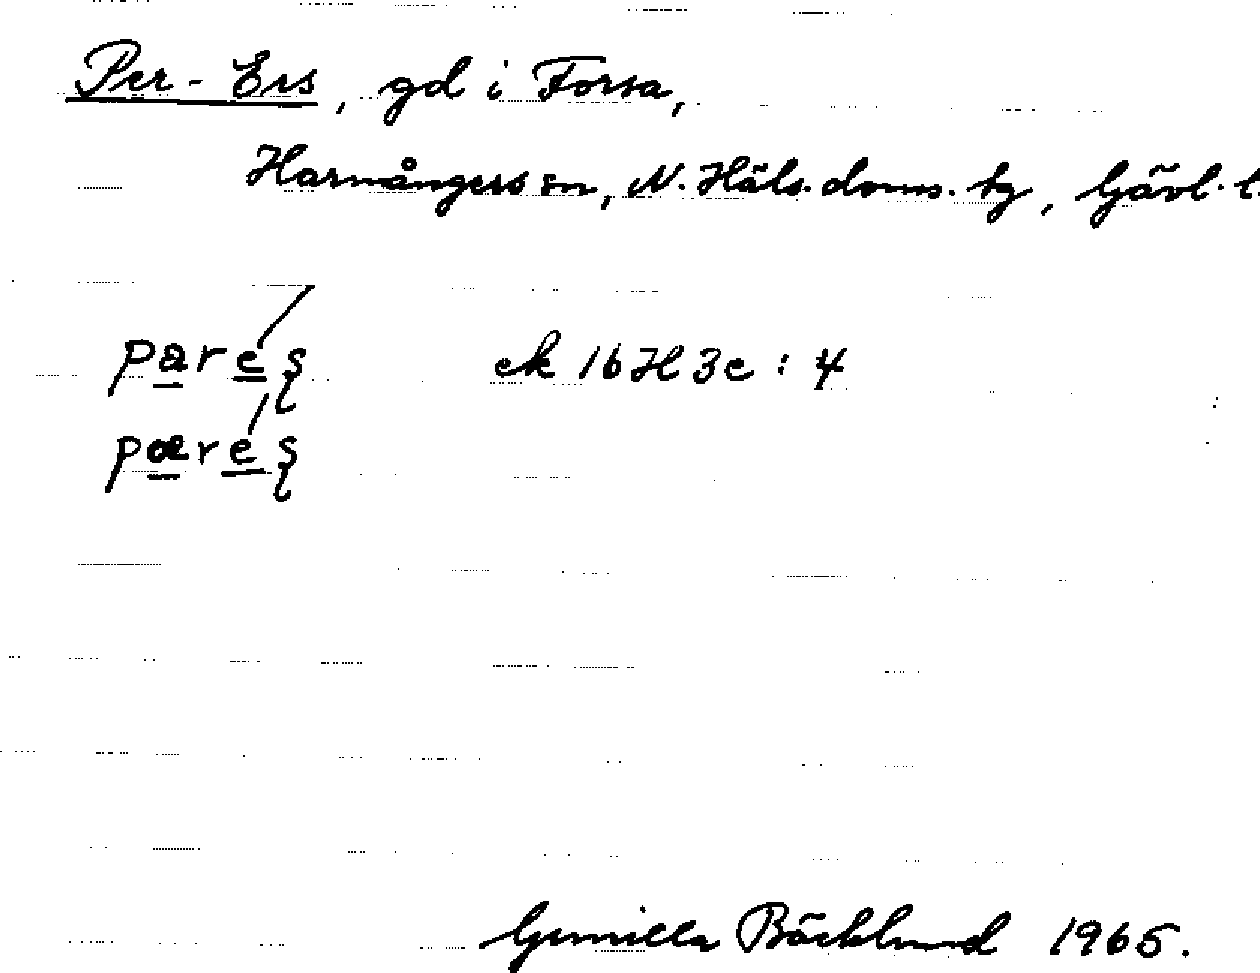 Per-Ers, gd i Forsa,
Harmångers sn, N. Häls. doms. tg, Gävl. l.
pareʂ ek 16H3e:4
pæreʂ
Gunilla Bäcklund 1965.